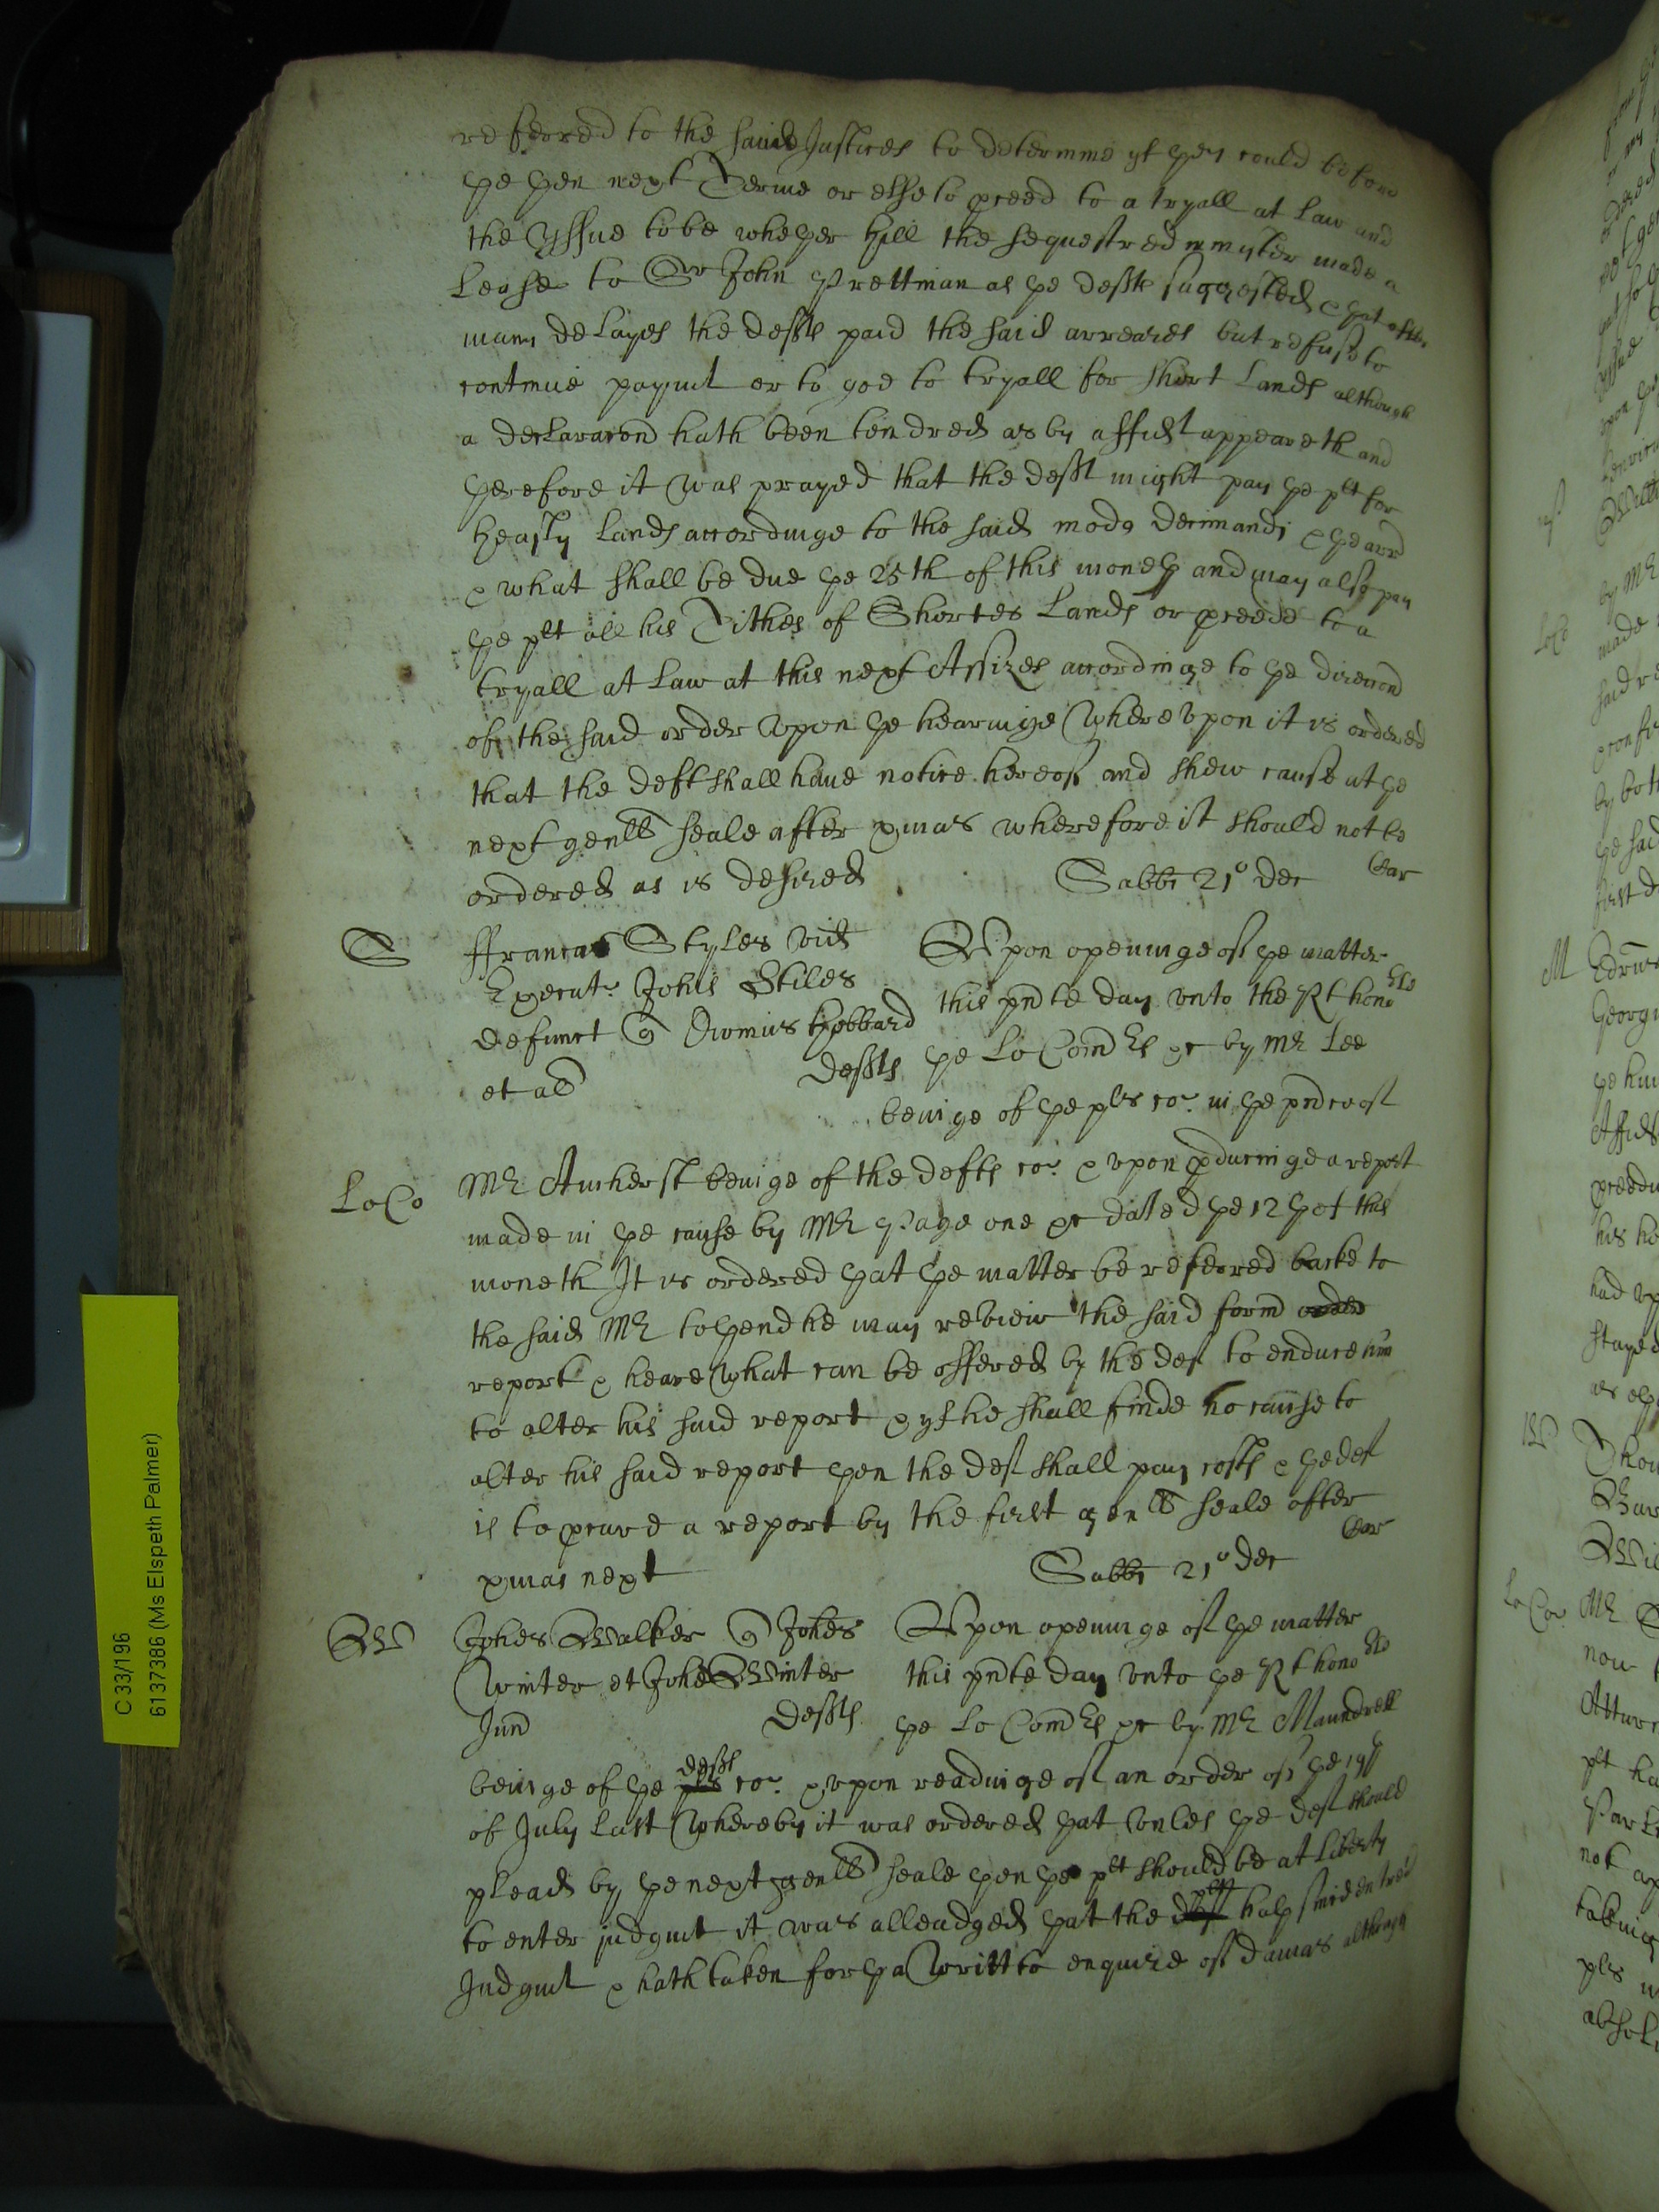 referred to the said Justices to determine yf they could before
the then next Terme or else to pceed to a tryall at Law and
the Yssue to be whether Hill the sequestred mynister made a
Lease to Sr John Prettman as the defts suggested & that after
many delayes the defts paid the said arreares but refuse to
continue paymt or to goe to tryall for Short Lands although
a declaracon hath been tendred as by affidt appeareth and
therefore it was prayed that the deft might pay the plt for
Heasty Lands accordinge to the said modq decimandi & the arr
& what shall be due the 25th of this moneth and may also pay
the plt all his Tithes of Shortes Lands or pceed to a
tryall at Law at this next Assizes accordinge to the direccon
of the said order upon the hearinge Whereupon it is ordered
that the deft shall have notice hereof and shew cause at the
next genll seale after xmas wherefore it should not be
ordered as is desired
Sabbi 21o Dec Car
S ffrancas Styles vid Upon openinge of the matter
Execut. Johis Stiles this pnte day unto the Rt honoble
defunct Dionius Hobbard
et al defts the Lo Comrs &c by Mr Lee
beinge of the plts co. in the pnce of
LoCo Mr Amherst beinge of the defts co. & upon pducinge a report
made in the cause by Mr Page one &c dated the 12th of this
moneth It is ordered that the matter be referred backe to
the said Mr to thend he may review the said form order
report & heare what can be offered by the def to enduce him
to alter his said report & yf he shall finde no cause to
alter his said report then the def shall pay costs & the def
is to pcure a report by the first genll seale after
xmas next Sabbi 21o Dec Car
W Johes Walker Johes Upon openinge of the matter
Winter et Johe Winter this pnte day unto the Rt honoble
Jun defts the Lo Comrs &c by Mr Maundrell
beinge of the plts defts co. & upon readinge of an order of the 19th
of July Last Whereby it was ordered that unles the def should
plead by the next genll seale then the plt should be at liberty
to enter judgmt it was alleadged that the def plt hath since entred
Judgmt & hath taken forth a Writt to enquire of damas although
C 33/196
6137386 (Ms Elspeth Palmer)